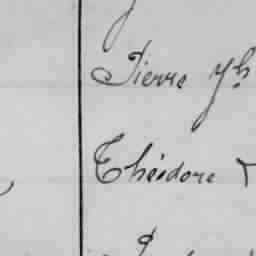 Pierre Jh
Théodore